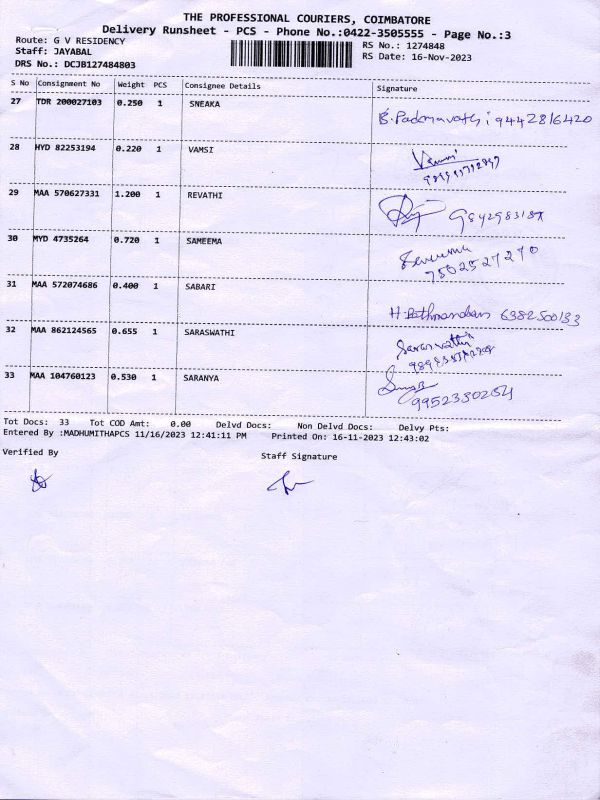 THE PROFESSIONAL COURIERS, COIMBATORE
Delivery Runsheet - PCS - Phone No.:0422-3505555 - Page No.:3
Route: G V RESIDENCY
RS No.: 1274848
Staff: JAYABAL
RS Date: 16-Nov-2023
DRS No.: DCJB127484803
S No Consignment No Weight PCS Consignee Details Signature
27 TDR 200027103 0.250 1 SNEAKA
B.Padmavathi 9442816420
28 HYD 82253194 0.220 1 VAMSI
29 MAA 570627331 1.200 1 REVATHI
30 MYD 4735264 0.720 1 SAMEEMA
7502527270
31 MAA 572074686 0.400 1 SABARI
6382500133
32 MAA 862124565 0.655 1 SARASWATHI
Saraswathi
33 MAA 104760123 0.530 1 SARANYA
Tot Docs: 33 Tot COD Amt: 0.00 Delvd Docs: Non Delvd Docs: Delvy Pts:
Entered By :MADHUMITHAPCS 11/16/2023 12:41:11 PM Printed On: 16-11-2023 12:43:02
Verified By
Staff Signature